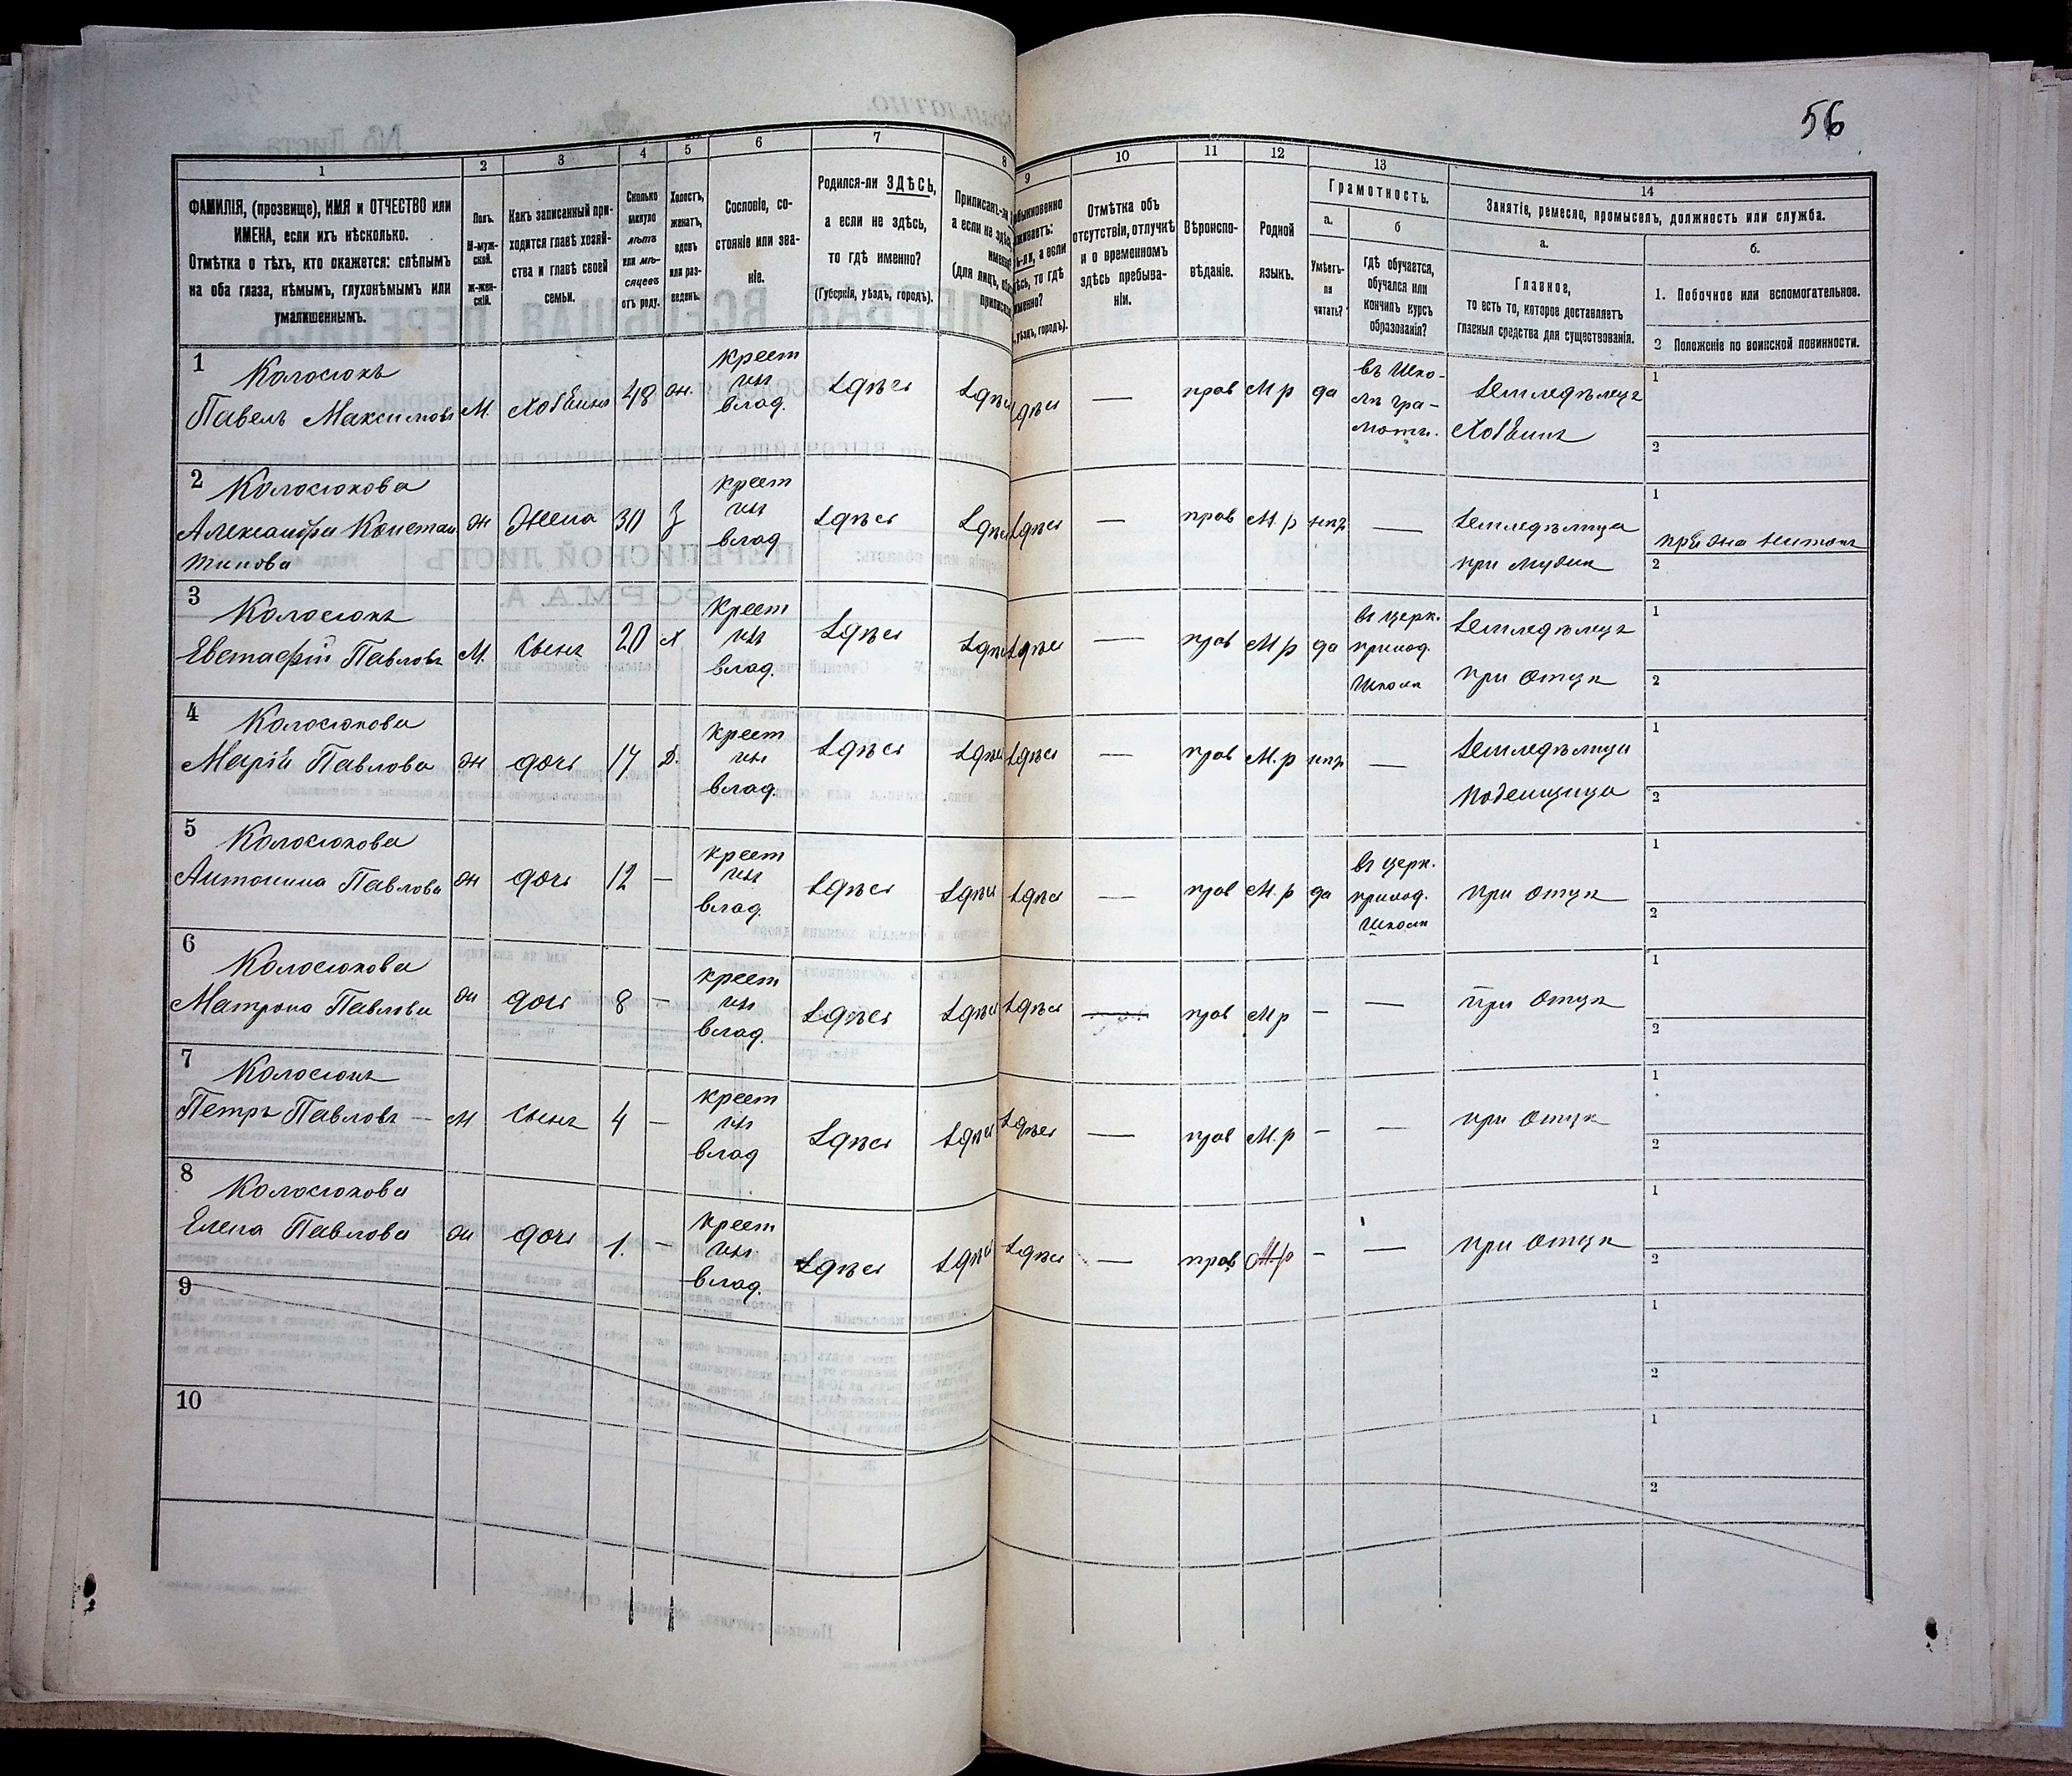 56
1
2
3
4
5
6
7
8
9
10
11
12
13
14
ФАМИЛІЯ, (прозвище), ИМЯ и ОТЧЕСТВО или
ИМЕНА, если ихъ нѣсколько.
Отмѣтка о тѣхъ, кто окажется: слѣпымъ
на оба глаза, нѣмымъ, глухонѣмымъ или
умалишеннымъ.
Полъ.
М-муж-
ской.
ж-жен-
скій.
Какъ записанный при-
ходится главѣ хозяй-
ства и главѣ своей
семьи.
Сколько
минуло
лѣтъ
или мѣ-
сяцевъ
отъ роду.
Холостъ,
женатъ,
вдовъ
или раз-
веденъ.
Сословіе, со-
стояніе или зва-
ніе.
Родился-ли ЗДѢСЬ,
а если не здѣсь,
то гдѣ именно?
(Губернія, уѣздъ, городъ).
Приписанъ-ли
а если не здѣс
именно
(для лицъ, об
приписк
быкновенно
живаетъ:
ь-ли, а если
ѣсь, то гдѣ
менно?
уѣздъ, городъ).
Отмѣтка объ
отсутствіи, отлучкѣ
и о временномъ
здѣсь пребыва-
ніи.
Вѣроиспо-
вѣданіе.
Родной
языкъ.
Грамотность.
а.
б
Умѣетъ-
ли
читать?
гдѣ обучается,
обучался или
кончилъ курсъ
образованія?
Занятіе, ремесло, промыселъ, должность или служба.
а.
б.
Главное,
то есть то, которое доставляетъ
главныя средства для существованія.
1. Побочное или вспомогательное.
2 Положеніе по воинской повинности.
1 Колосюкъ
Павелъ Максимовъ М. Хозяинъ 48 ж. крест изъ влад. Здѣсь Здѣсь Здѣсь — прав М р да въ Шко-
лѣ гра-
моты.
Земледѣлецъ
Хозяинъ
1
2
2 Колосюкова
Александра Констан
тинова ж Жена 30 з крест изъ влад Здѣсь Здѣсь Здѣсь — прав М. р нѣтъ —
Земледѣлица
при мужѣ
1
2
3 Колосюкъ
Евстафій Павловъ М. Сынъ 20 х крест изъ влад. Здѣсь Здѣсь Здѣсь — прав М р да въ церк.
приход.
Школѣ
Земледѣлецъ
при Отцѣ
1
2
4 Колосюкова
Марія Павлова ж дочь 17 Д. крест изъ влад. Здѣсь Здѣсь Здѣсь — прав М. р нѣтъ —
Земледѣлица
Поденщица
1
2
5 Колосюкова
Антонина Павлова ж дочь 12 — крест изъ влад. Здѣсь Здѣсь Здѣсь — прав М. р да въ церк.
приход.
Школѣ
при Отцѣ
1
2
6 Колосюкова
Матрона Павлова ж дочь 8 — крест изъ влад. Здѣсь Здѣсь Здѣсь — прав М р — — при Отцѣ
1
2
7 Колосюкъ
Петръ Павловъ — М Сынъ 4 — крест изъ влад Здѣсь Здѣсь Здѣсь — прав М. р — — при Отцѣ
1
2
8 Колосюкова
Елена Павлова ж дочь 1. — крест изъ влад. Здѣсь Здѣсь Здѣсь — прав М р — — при Отцѣ
1
2
9
1
2
10
1
2